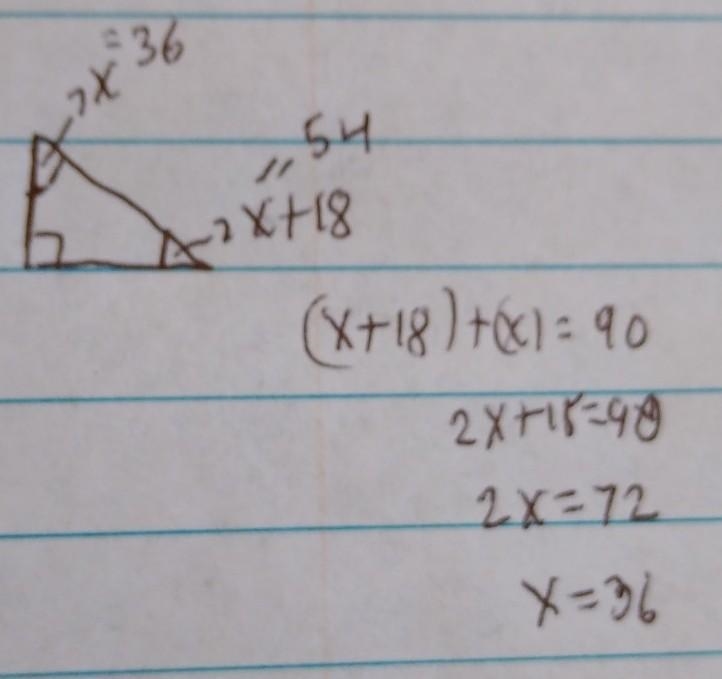 = 36
x
= 54
x+18
(x+18)+(x)=90
2x+18=90
2x=72
x=36